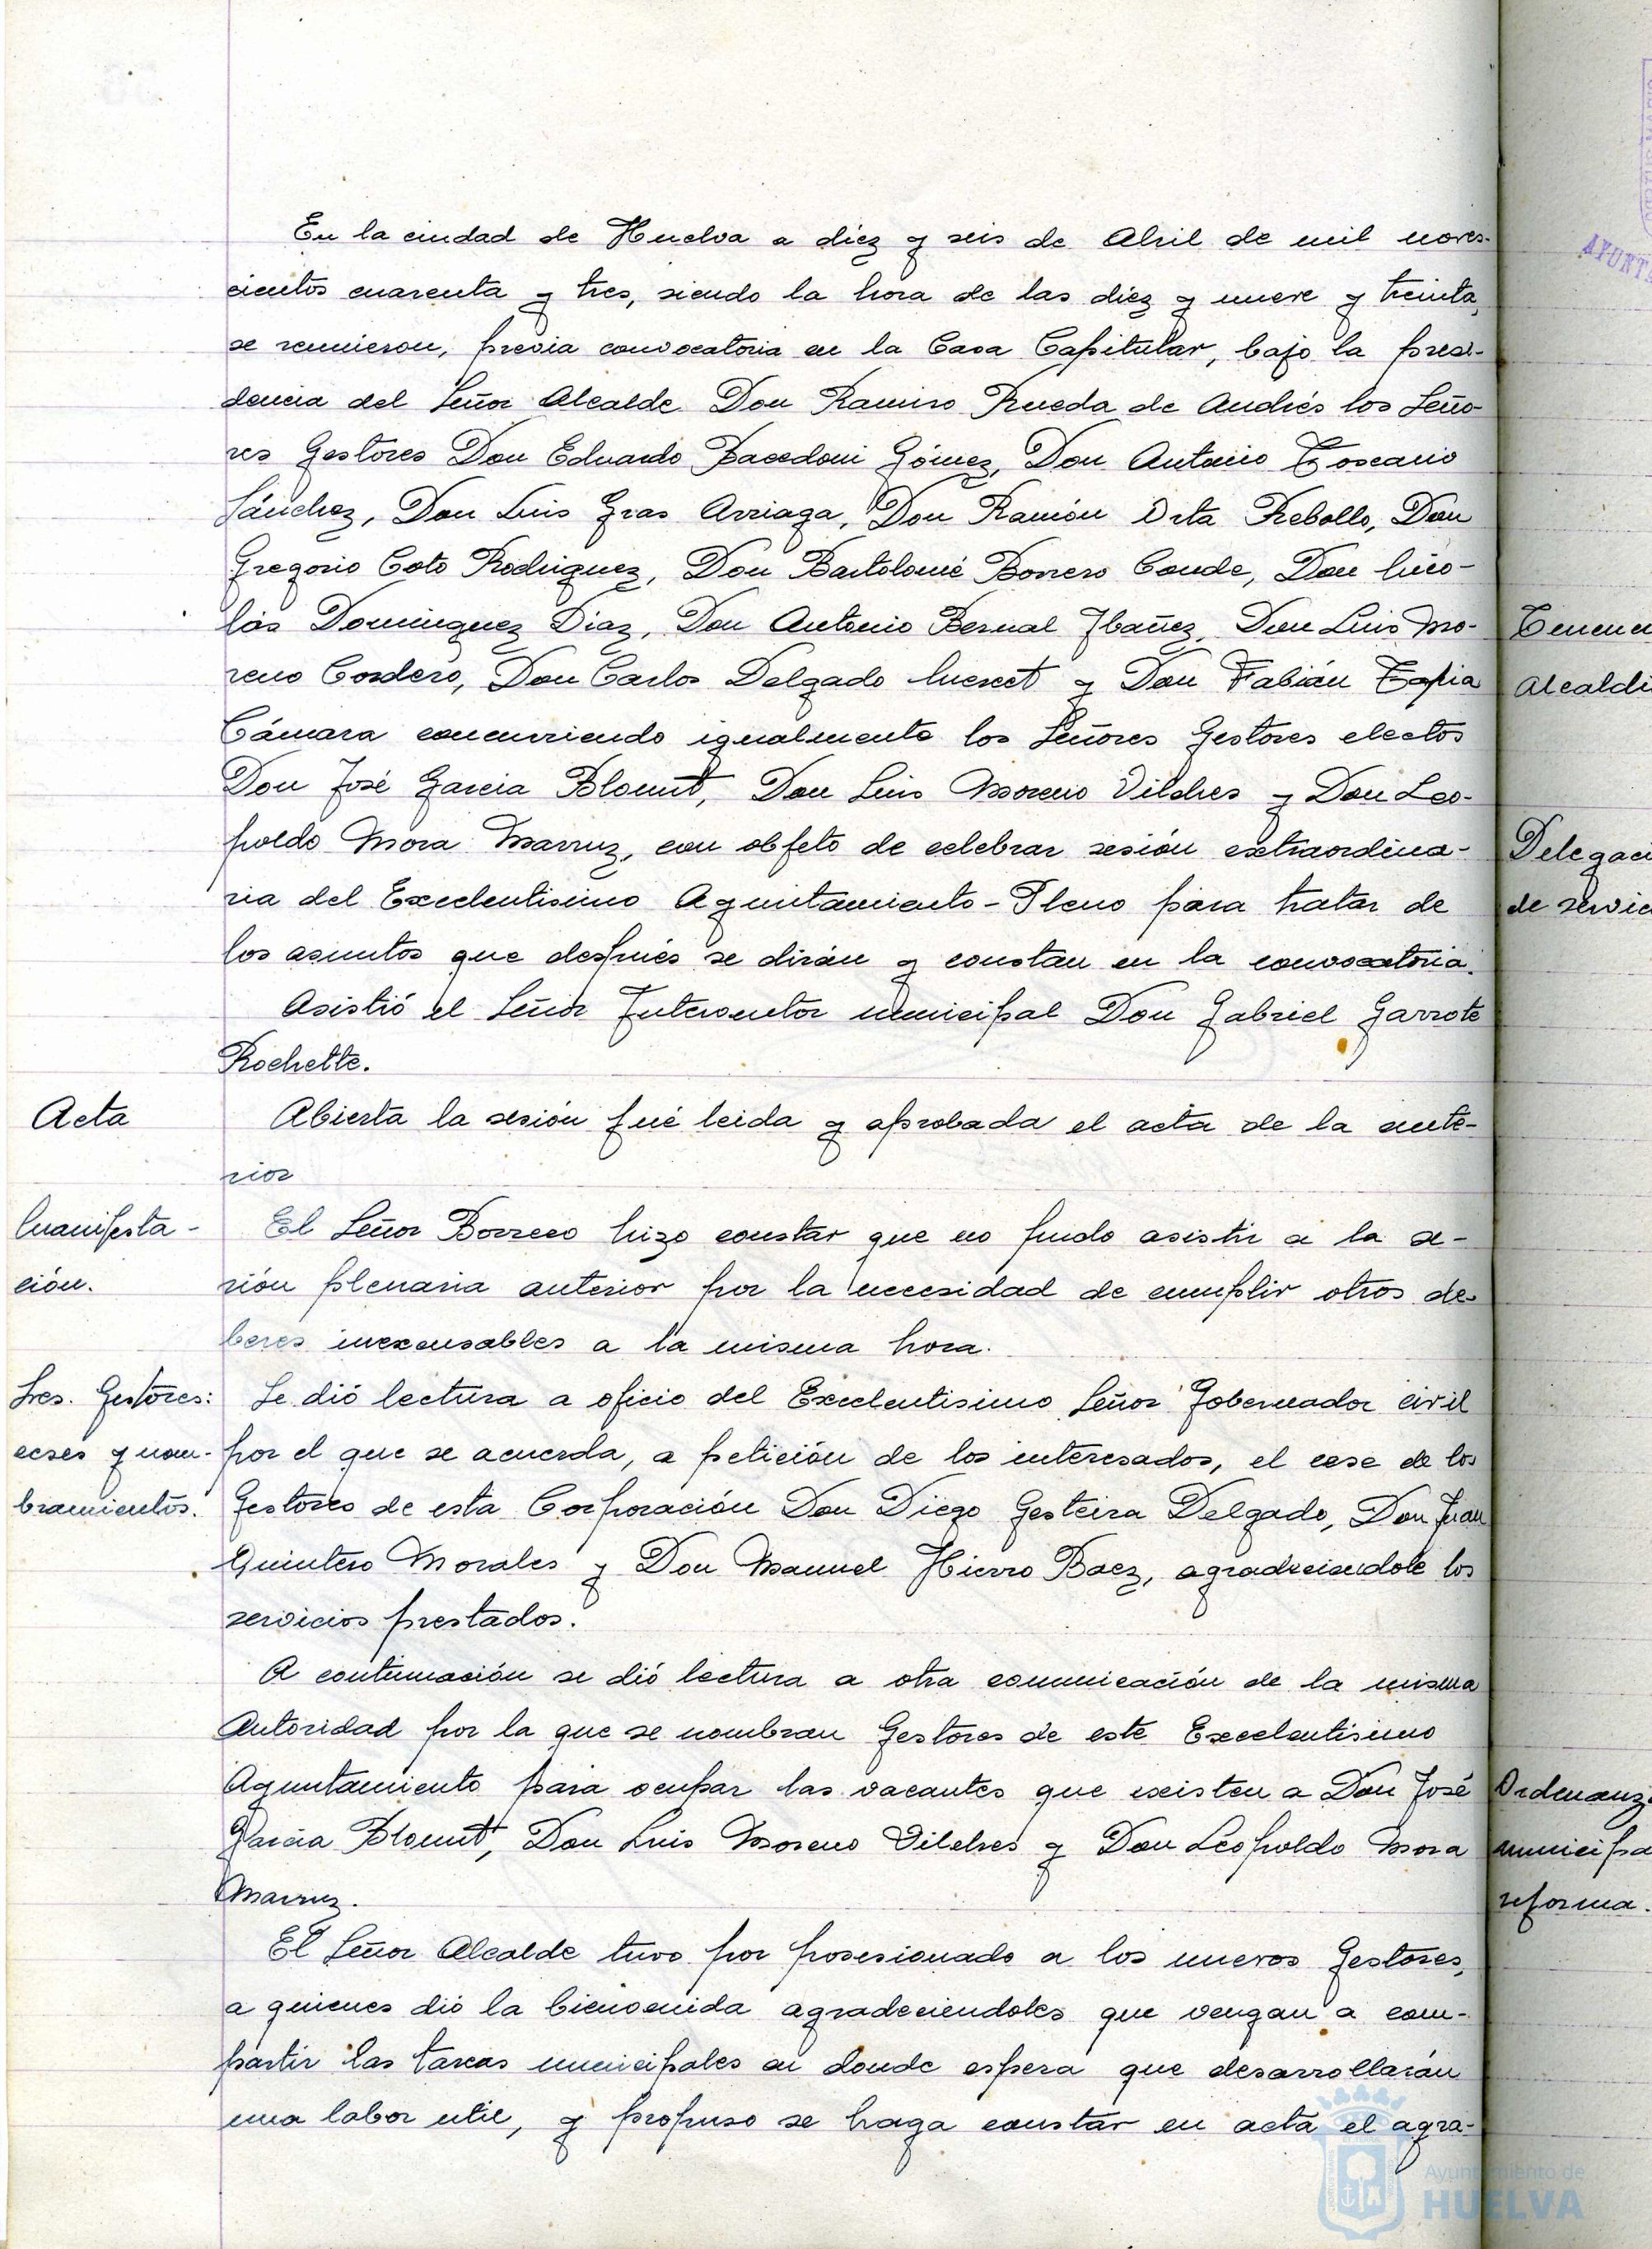 En la ciudad de Huelva a diez y seis de Abril de mil noves-
cientos cuarenta y tres, siendo la hora de las diez y nueve y treinta,
se reunieron, previa convocatoria en la Casa Capitular, bajo la presi-
dencia del Señor Alcalde Don Ramiro Rueda de Andrés los Seño-
res Gestores Don Eduardo Bacedoni Gómez, Don Antonio Toscano
Sánchez, Don Luis Gras Arriaga, Don Ramón Orta Rebollo, Don
Gregorio Coto Rodriguez, Don Bartolomé Borrero Conde, Don Nico-
lás Dominguez Diaz, Don Antonio Bernal Ibañez, Don Luis Mo-
reno Cordero, Don Carlos Delgado y Don Fabián Tapia
Cámara concurriendo igualmente los Señores Gestores electos
Don José Garcia Blount, Don Luis Moreno Vilches y Don Leo-
poldo Mora Marruz, con objeto de celebrar sesión extraordina-
ria del Excelentisimo Ayuntamiento-Pleno para tratar de
los asuntos que después se dirán y constan en la convocatoria.
Asistió el Señor Interventor municipal Don Gabriel Garrote
Rochette.
Acta
Abierta la sesión fué leida y aprobada el acta de la ante-
rior
Manifesta-
ción.
El Señor Borrero hizo constar que no pudo asistir a la se-
sión plenaria anterior por la necesidad de cumplir otros de-
beres inexcusables a la misma hora.
Sres. Gestores:
ceses y nom-
bramientos.
Se dió lectura a oficio del Excelentisimo Señor Gobernador civil
por el que se acuerda, a petición de los interesados, el cese de los
Gestores de esta Corporación Don Diego Gesteira Delgado, Don Juan
Quintero Morales y Don Manuel Hierro Baez, agradeciendole los
servicios prestados.
A continuación se dió lectura a otra comunicación de la misma
Autoridad por la que se nombran Gestores de este Excelentisimo
Ayuntamiento para ocupar las vacantes que existen a Don José
Garcia Blount, Don Luis Moreno Vilches y Don Leopoldo Mora
Marruz.
El Señor Alcalde tuvo por posesionado a los nuevos Gestores,
a quienes dió la bienvenida agradeciendoles que vengan a com-
partir las tareas municipales en donde espera que desarrollarán
una labor util, y propuso se haga constar en acta el agra-
Tenenci
Alcaldi
Delegaci
de servic
Ordenanz
municipa
reforma.
AYUNT
Ayuntamiento de
HUELVA